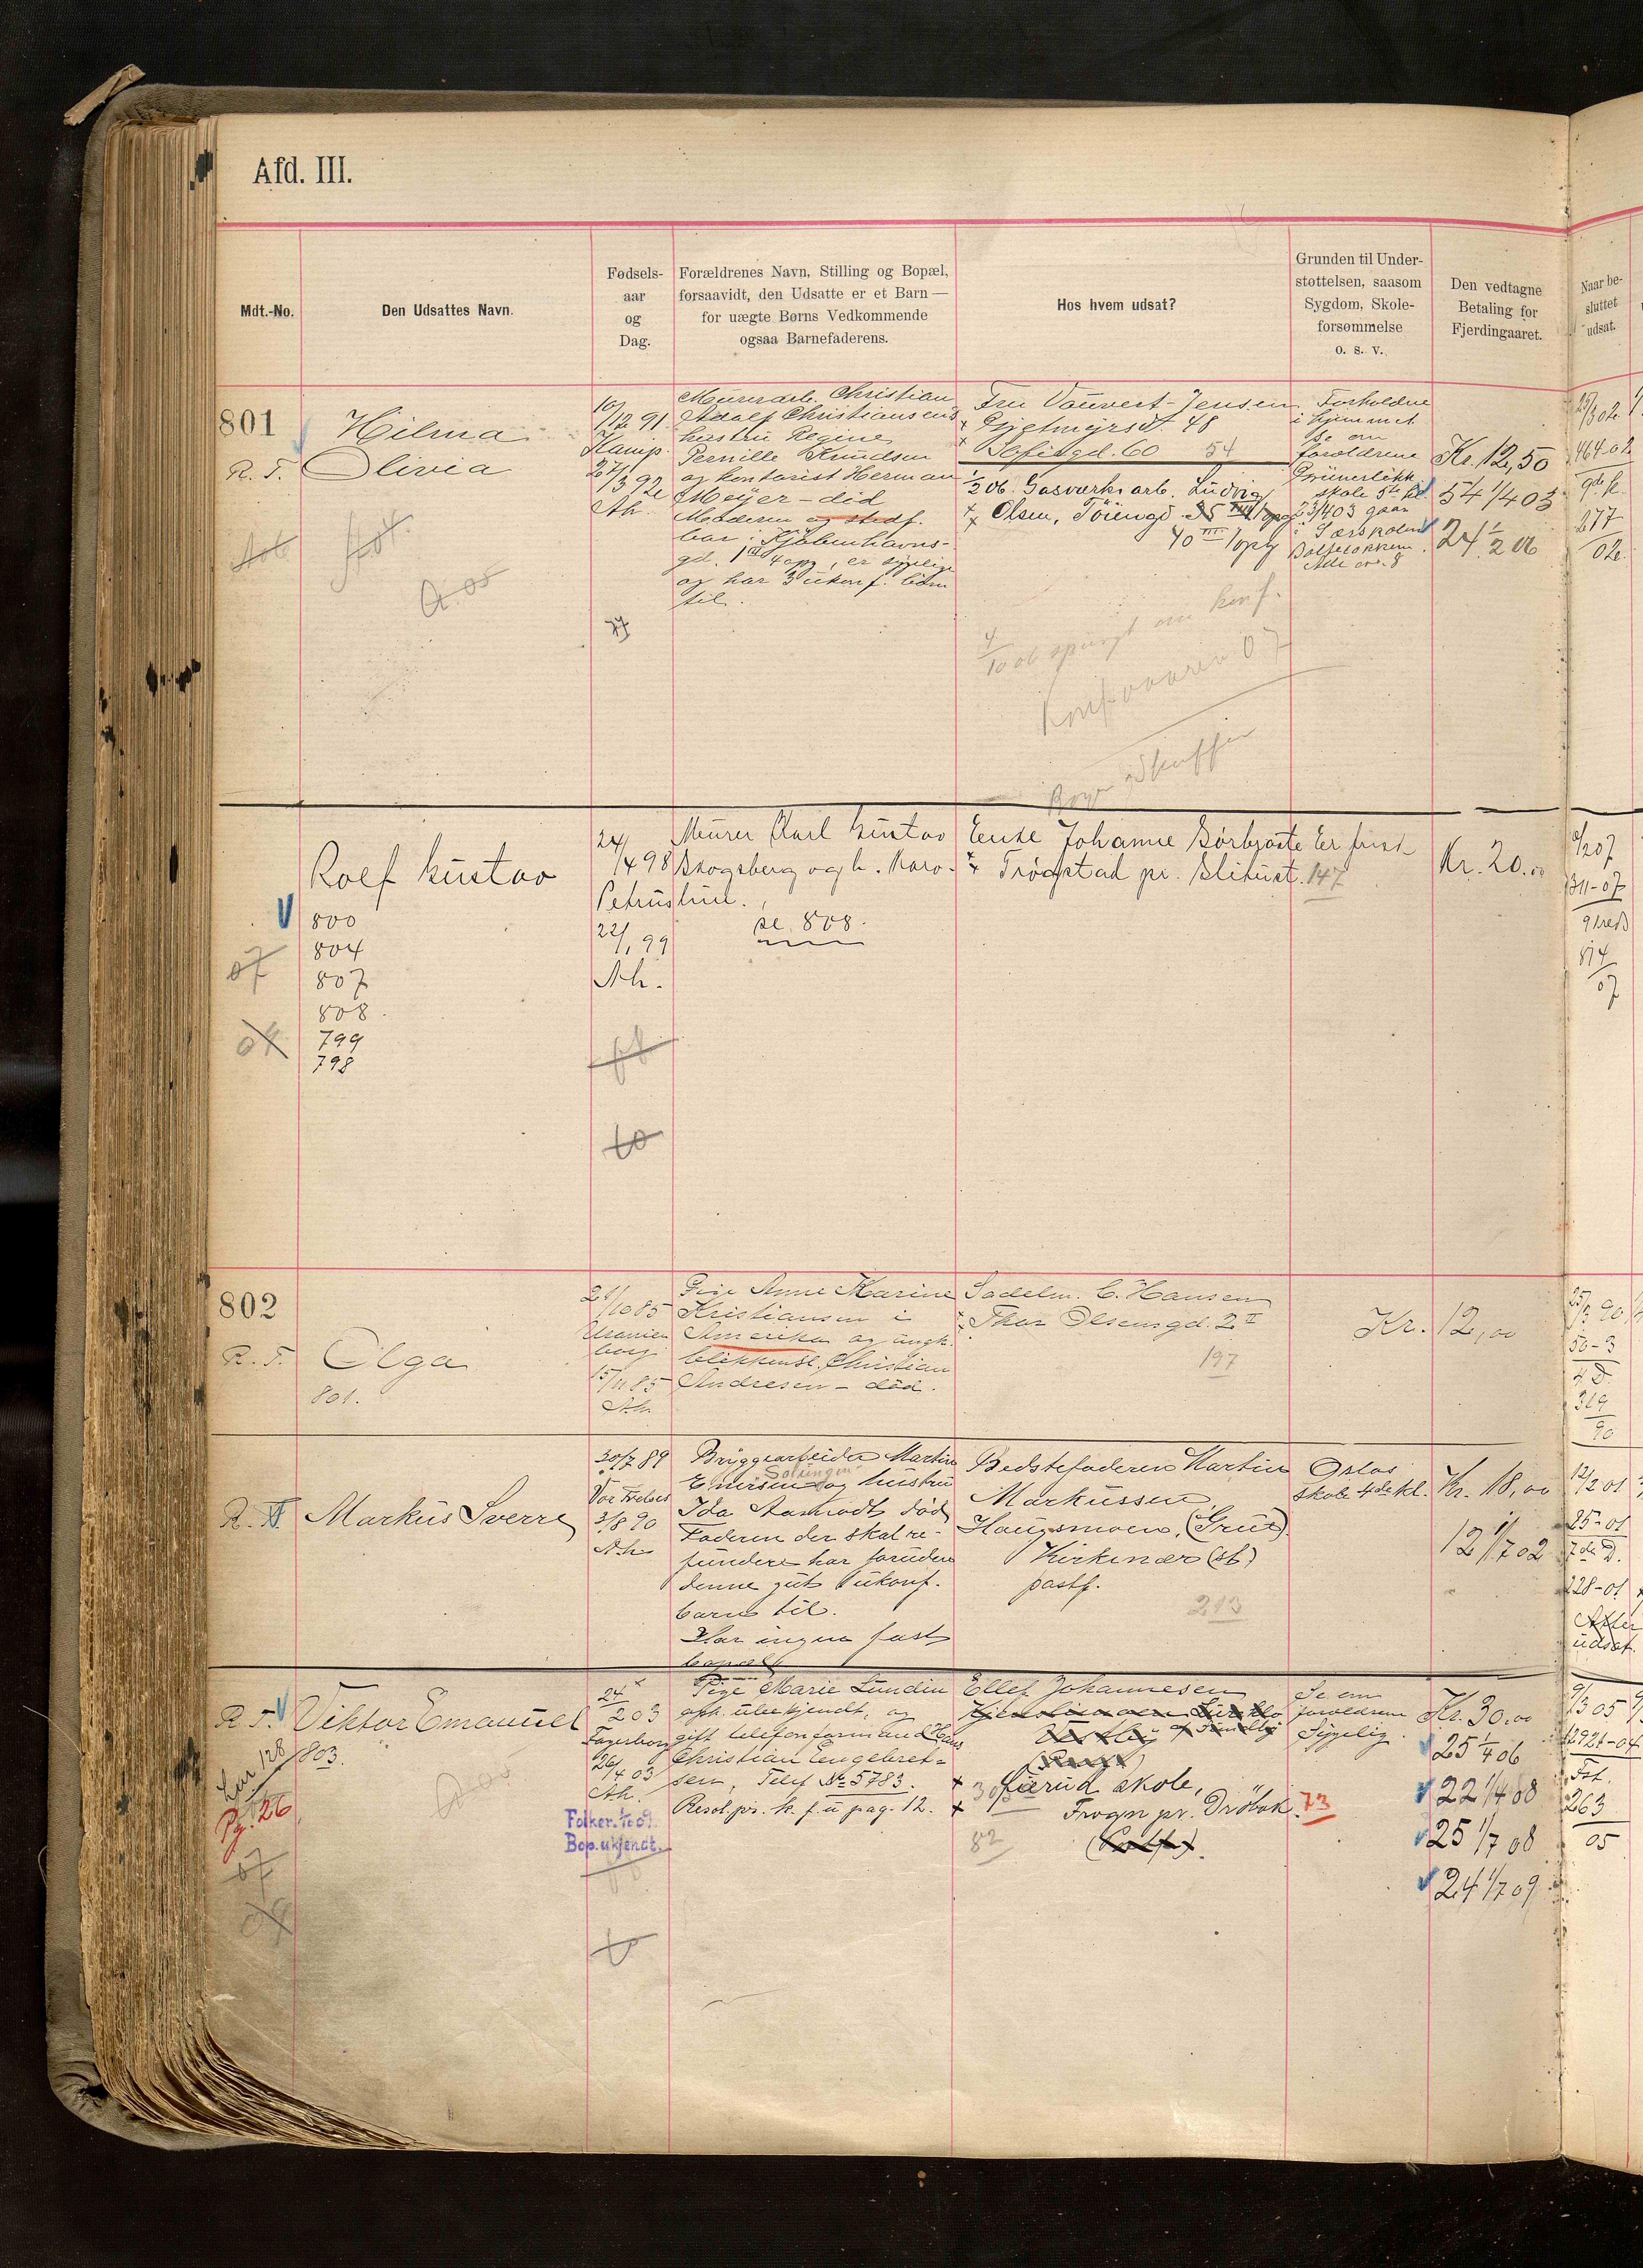 Afd. III.
Mdt.-No.
Den Udsattes Navn.
Fødsels-
aar
og
Dag.
Forældrenes Navn, Stilling og Bopæl,
forsaavidt, den Udsatte er et Barn —
for uægte Børns Vedkommende
ogsaa Barnefaderens.
Hos hvem udsat?
Grunden til Under-
støttelsen, saasom
Sygdom, Skole-
forsømmelse
o. s. v.
Den vedtagne
Betaling for
Fjerdingaaret.
Naar be-
sluttet
udsat.
801
R. T.
Hilma
Olivia
10/12 91
Kamp.
27/3 92
Ah.
Murerarb. Christian
Adolf Christiansens
hustru Regine
Pernille Knudsen
og kontorist Herman
Meyer - død
Moderen og stedf.
bor: Kjøbenhavns-
gd. 1 4 opg, er sygelig
og har 3 ukonf. børn
til.
Fru Vauvert-Jensen
Gjetmyrsvt 48
Sofiegd. 60 54
1/2 06. Gasværksarb. Ludvig
Olsen, Tøiengd 35 III/opg
40 III/opg
Forholdene
i hjemmet
Se om
forældrene
Grünerløkk
skole 5te kl.
23/4 03 gaar
i Særskolen
Kr. 12,50
54 1/4 03
24 1/2 06
464-02
277
02
4/10 06 spurgt om konf.
Konf. vaaren 07
Rolf Gustav
800
804
807
808
799
798
07
24/4 98
Petrus
22/1 99
Ah.
Murer Karl Gustav
Skogsberg og h. Karo-
line.
se 808.
Enke Johanne Børbjaste
Trøgstad pr. Slitust. 147
Kr. 20.00
07
802
R. T.
Olga
801.
21/10 85
Uranien
borg
15/11 85
Ah
Pige Anne Marine
Kristiansen i
Amerika og ungk.
blikkensl. Christian
Andresen - død.
Sadelm. C. Hansen
Thor Olsensgd. 2 II
197
Kr. 12,00
50-3
319
90
Markus Sverre
30/7 89
Vor Frelser
3/8 90
Ah
Bryggearbeider Martin
Emersen og hustru
Ida Aamodt død
Faderen der skal re-
fundere har foruden
denne gut 1 ukonf.
barn til.
Har ingen fast
bopæl
Bedstefaderen Martin
Markussen,
Haugsmoen, (Grue)
Kirkenær (st)
postf.
213
Oslos
skole 4de kl.
Kr. 18,00
12 1/7 02
12/2 01
25-01
7de D.
228-01
Atter
udsat.
R. T.
Viktor Emanuel
803.
128
Pg. 26
07
24/2 03
Fagerborg
26/4 03
Ah.
Folker. 1/10 09.
Bop. ukjendt.
Pige Marie Lundin
oph. ubekjendt, og
gift telefonformand Hans
Christian Engebret-
sen, Telef No 5783.
Resol. pr. k. f. u. pag. 12.
Ellef Johannesen
Lierud skole,
Frogn pr. Drøbak. 73
82
Se om
forældrene
Sygelig.
Kr. 30.00
25 1/4 06
22 1/4 08
25 1/7 08
24 1/7 09
9/3 05
2721-04
Fst.
263
05